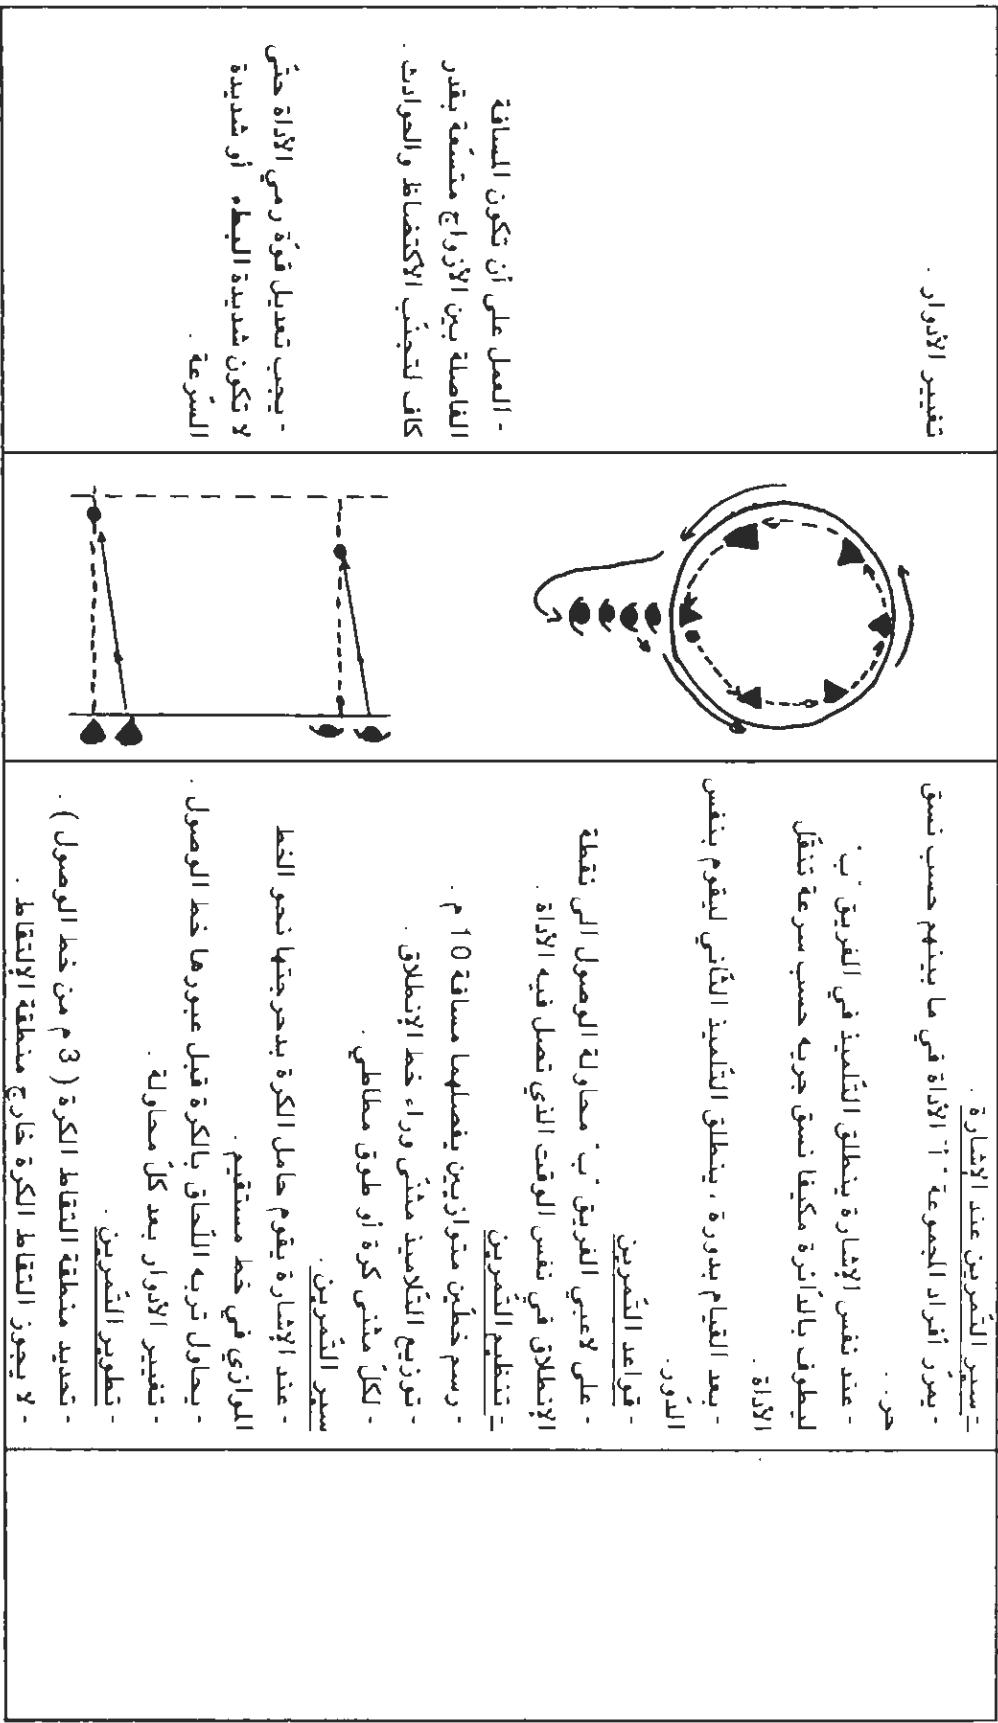 - سير التّمرين عند الإشارة .
- يمرّر أفراد المجموعة " أ " الأداة في ما بينهم حسب نسق
حر . .
- عند نفس الإشارة ينطلق التّلميذ في الفريق " ب "
ليطوف بالدّائرة مكيفا نسق جريه حسب سرعة تنقّل
الأداة .
- بعد القيام بدورة ، ينطلق التّلميذ الثّاني ليقوم بنفس
الدّور .
- قواعد التّمرين
- على لاعبي الفريق " ب " محاولة الوصول الى نقطة
الإنطلاق في نفس الوقت الذي تصل فيه الأداة .
- تنظيم التّمرين
- رسم خطّين متوازيين يفصلهما مسافة 10 م .
- توزيع التّلاميذ مثنّى وراء خط الإنطلاق .
- لكلّ مثنّى كرة أو طوق مطّاطي .
سير التّمرين .
- عند الإشارة يقوم حامل الكرة بدحرجتها نحو الخط
الموازي في خط مستقيم .
- يحاول تربه اللّحاق بالكرة قبل عبورها خط الوصول .
- تغيير الأدوار بعد كلّ محاولة .
- تطوير التّمرين .
- تحديد منطقة التقاط الكرة ( 3 م من خط الوصول ) .
- لا يجوز التقاط الكرة خارج منطقة الإلتقاط .
تغيير الأدوار .
- العمل على أن تكون المسافة
الفاصلة بين الأزواج متسّعة بقدر
كاف لتجنّب الاكتضاظ والحوادث .
- يجب تعديل قوّة رمي الأداة حتّى
لا تكون شديدة البطء أو شديدة
السّرعة .